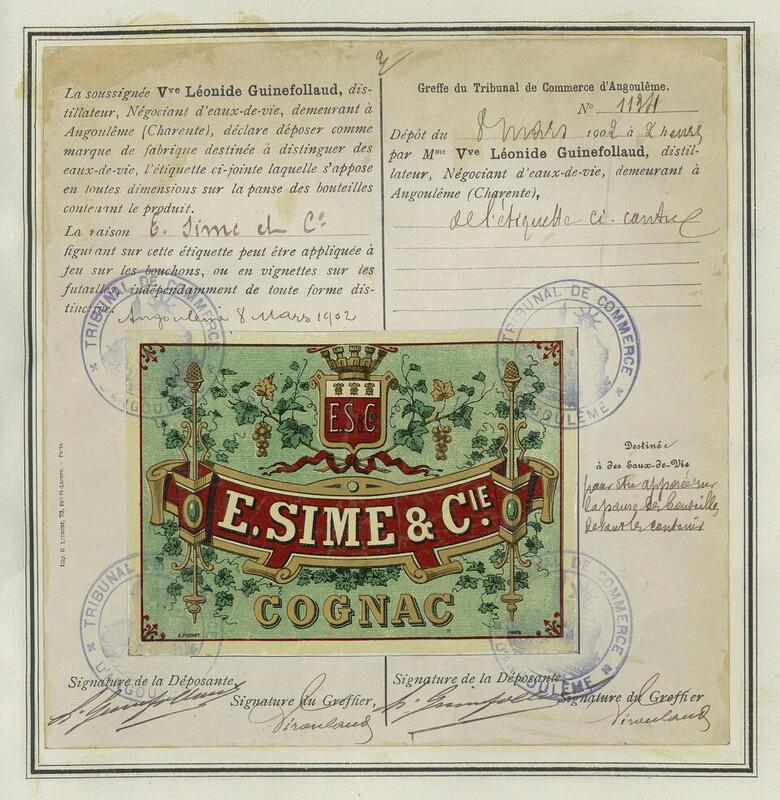 La soussignée Vve Léonide Guinefollaud, dis-
tillateur, Négociant d'eaux-de-vie, demeurant à
Angoulême (Charente), déclare déposer comme
marque de fabrique destinée à distinguer des
eaux-de-vie, l'étiquette ci-jointe laquelle s'appose
en toutes dimensions sur la panse des bouteilles
contenant le produit.
La raison E. Sime et Co
figurant sur cette étiquette peut être appliquée à
feu sur les bouchons, ou en vignettes sur les
futailles, indépendamment de toute forme dis-
tinctive.
Angoulême 8 Mars 1902
Greffe du Tribunal de Commerce d'Angoulême.
No 1124
Dépôt du 8 mars 1902 à 2 heures
par Mme Vve Léonide Guinefollaud, distil-
lateur, Négociant d'eaux-de-vie, demeurant à
Angoulême (Charente),
de l'étiquette ci-contre
TRIBUNAL DE COMMERCE
D'ANGOULÊME
TRIBUNAL DE COMMERCE
D'ANGOULÊME
E.S & Co
E. SIME & CIE.
COGNAC
E. PICHOT
PARIS
Destinée
à des Eaux-de-Vie
pour être apposée sur
la panse des bouteilles
devant les contenir
TRIBUNAL
D'ANGOU
COMMERCE
D'ANGOULÊME
Signature de la Déposante
Signature du Greffier,
Signature de la Déposante
Signature du Greffier